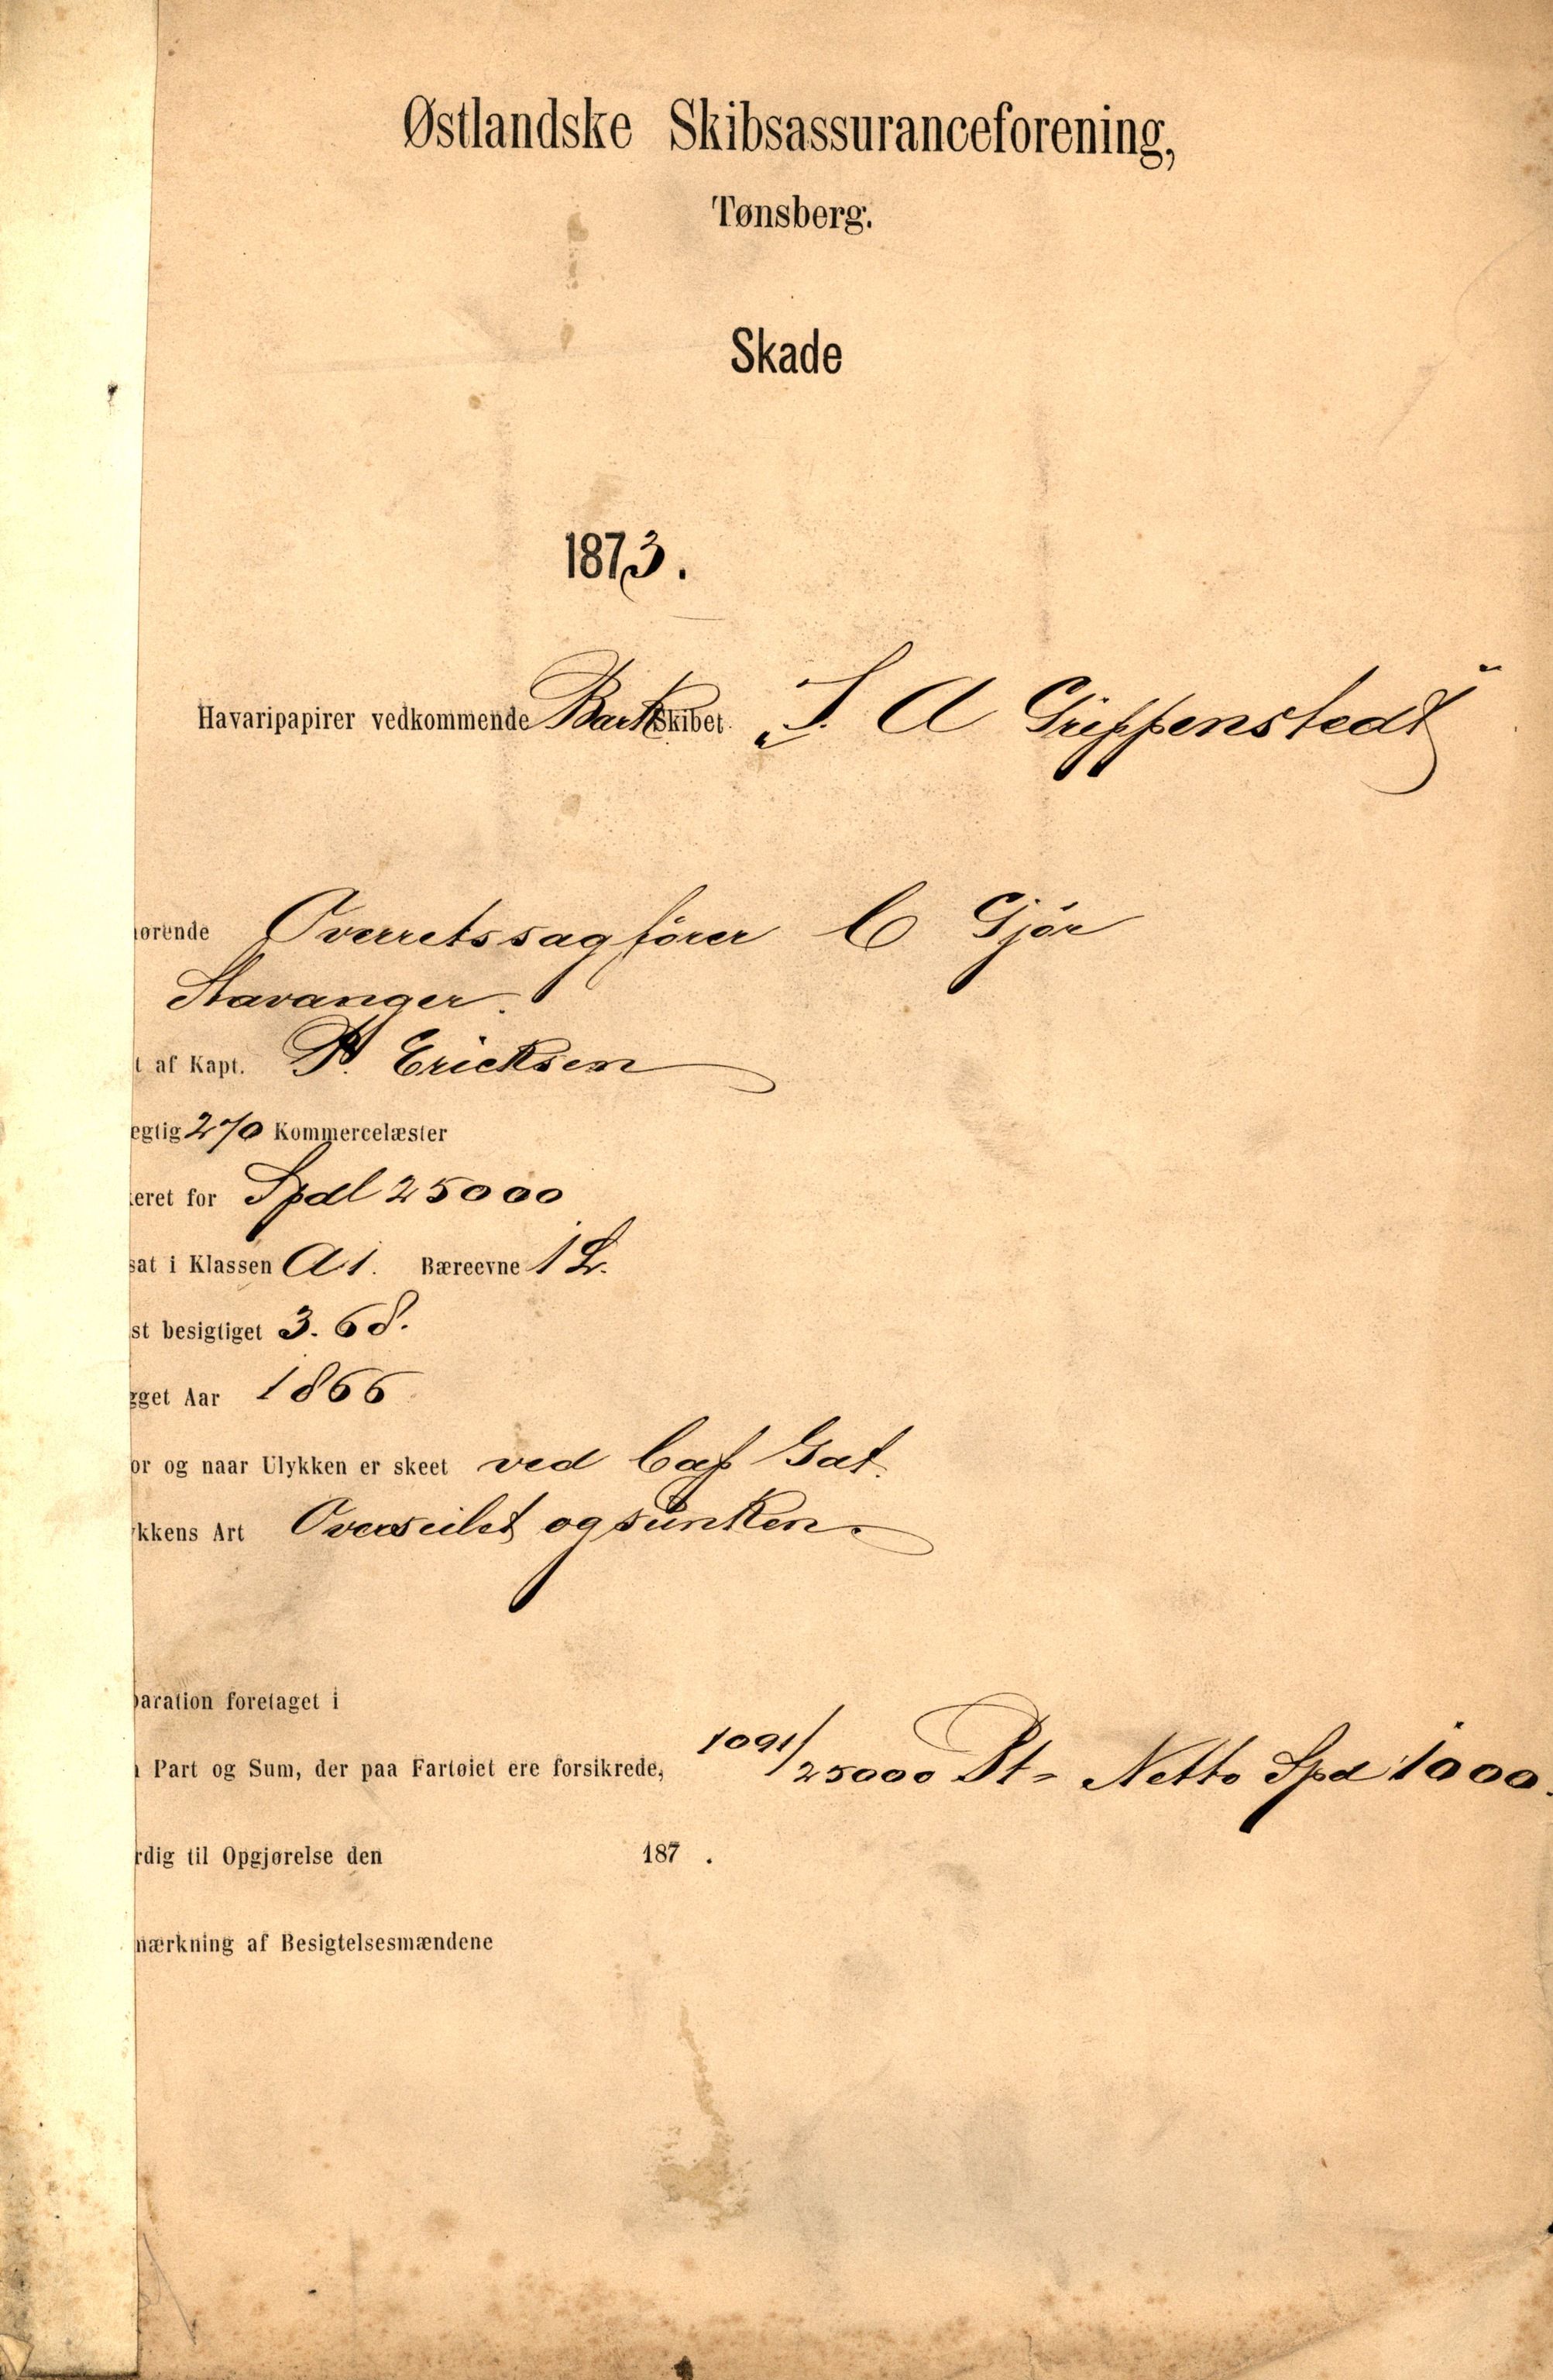 Østlandske Skibsassuranceforening,
Tønsberg.
Skade
1873.
Havaripapirer vedkommende Barkskibet „J. A Grippenstedt"
ørende Overretssagfører C Gjör
Stavanger.
t af Kapt. P. Ericksen
egtig 270 Kommercelæster
eret for Spdl 25000
sat i Klassen A1. Bæreevne 1 L.
st besigtiget 3. 68.
gget Aar 1866
or og naar Ulykken er skeet ved Cap Gat.
kkens Art Overseilet og sunken.
paration foretaget i
Part og Sum, der paa Fartøiet ere forsikrede, 1091/25000 Pt = Netto Spd 1000.
rdig til Opgjørelse den 187 .
mærkning af Besigtelsesmændene